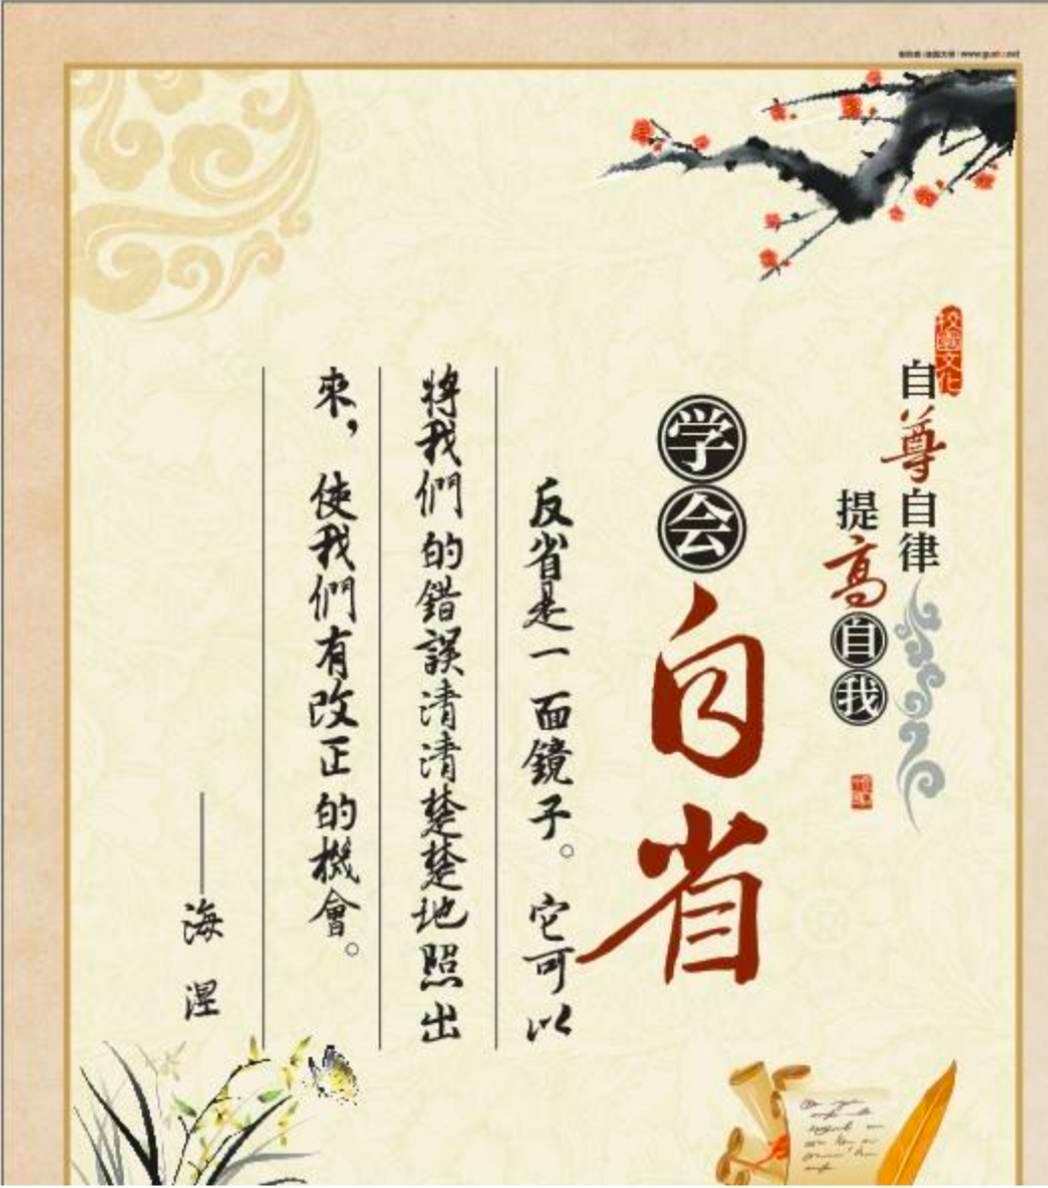 校園文化
自尊自律
提高自我
学会自省
反省是一面鏡子。它可以
將我們的錯誤清清楚楚地照出
來，使我們有改正的機會。
——海涅